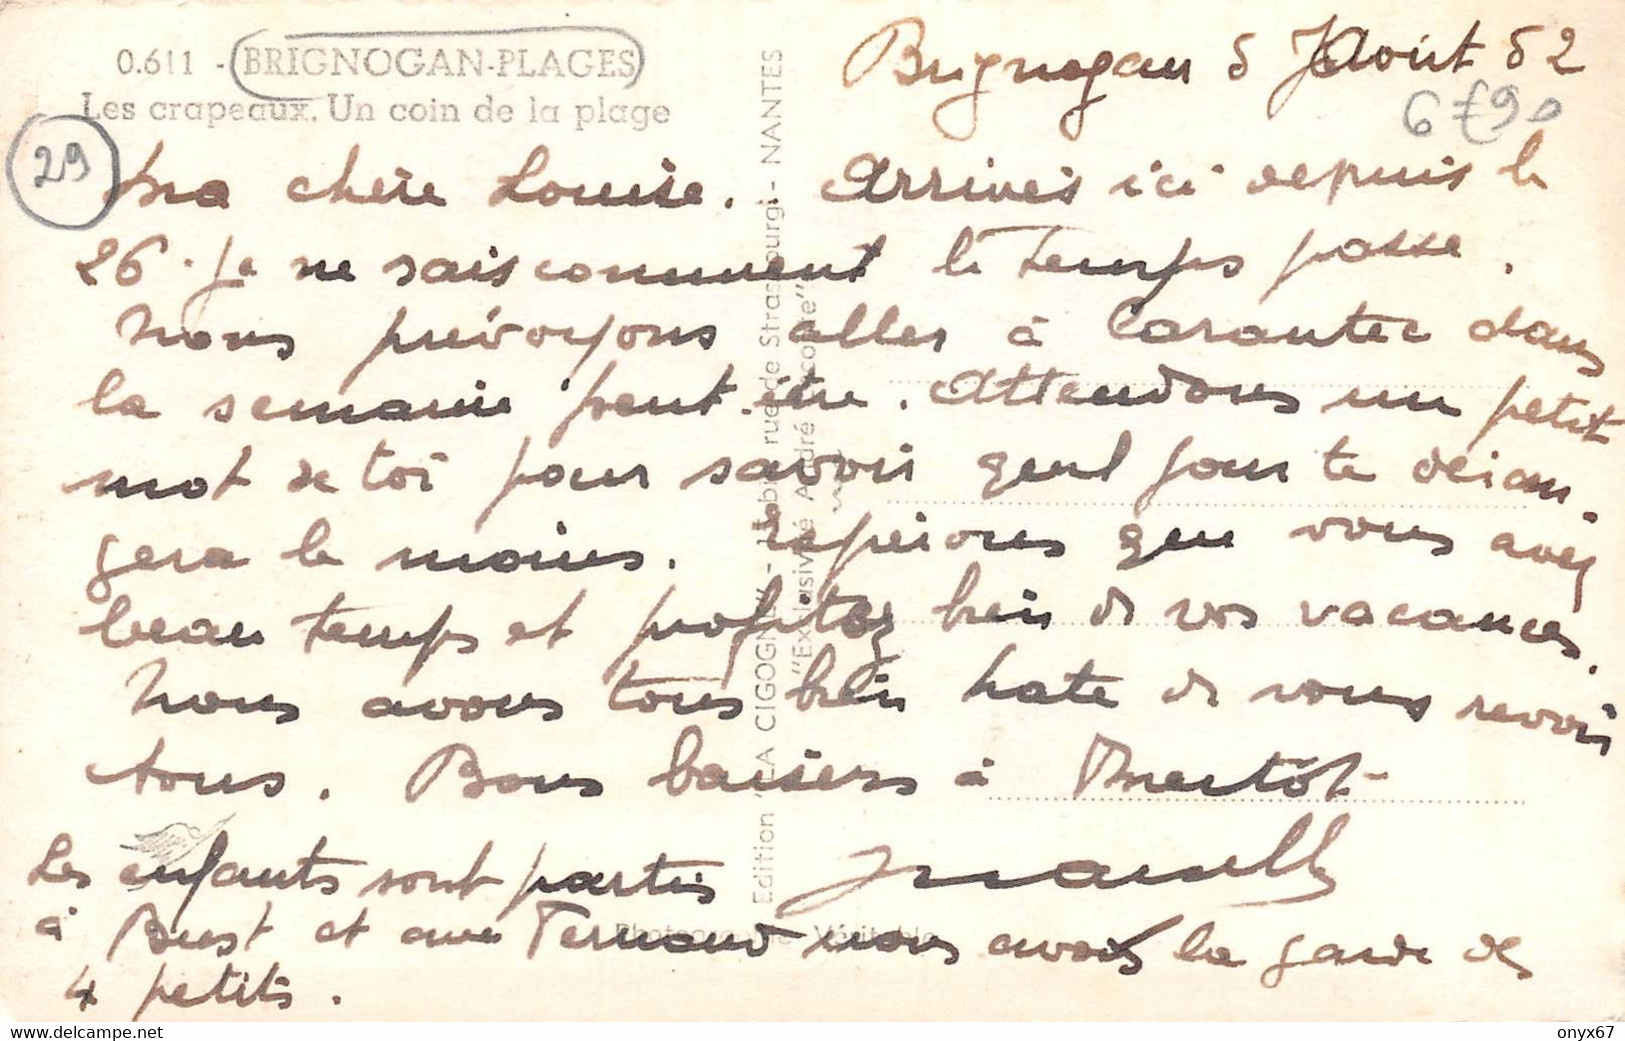 0.611 - BRIGNOGAN-PLAGES
Les crapeaux. Un coin de la plage
Brignogan 5 Août 52
6€90
29
Ma chère Louise. Arrivés ici depuis le
26. je ne sais comment le temps passe.
Nous prévoyons aller à Carantec dans
la semaine peut-être. Attendons un petit
mot de toi pour savoir quel jour te déran
gera le moins. Espérons que vous avez
beau temps et profitez bien de vos vacances.
Nous avons tous bien hate de vous revoir
tous. Bons baisers à
Les enfants sont partis
à Brest et avec Fernand nous avons la garde des
4 petits.
Edition "LA CIGOGNE" - rue de Strasbourg - NANTES
"Exclusivité André
Véritable
onyx67
www.delcampe.net